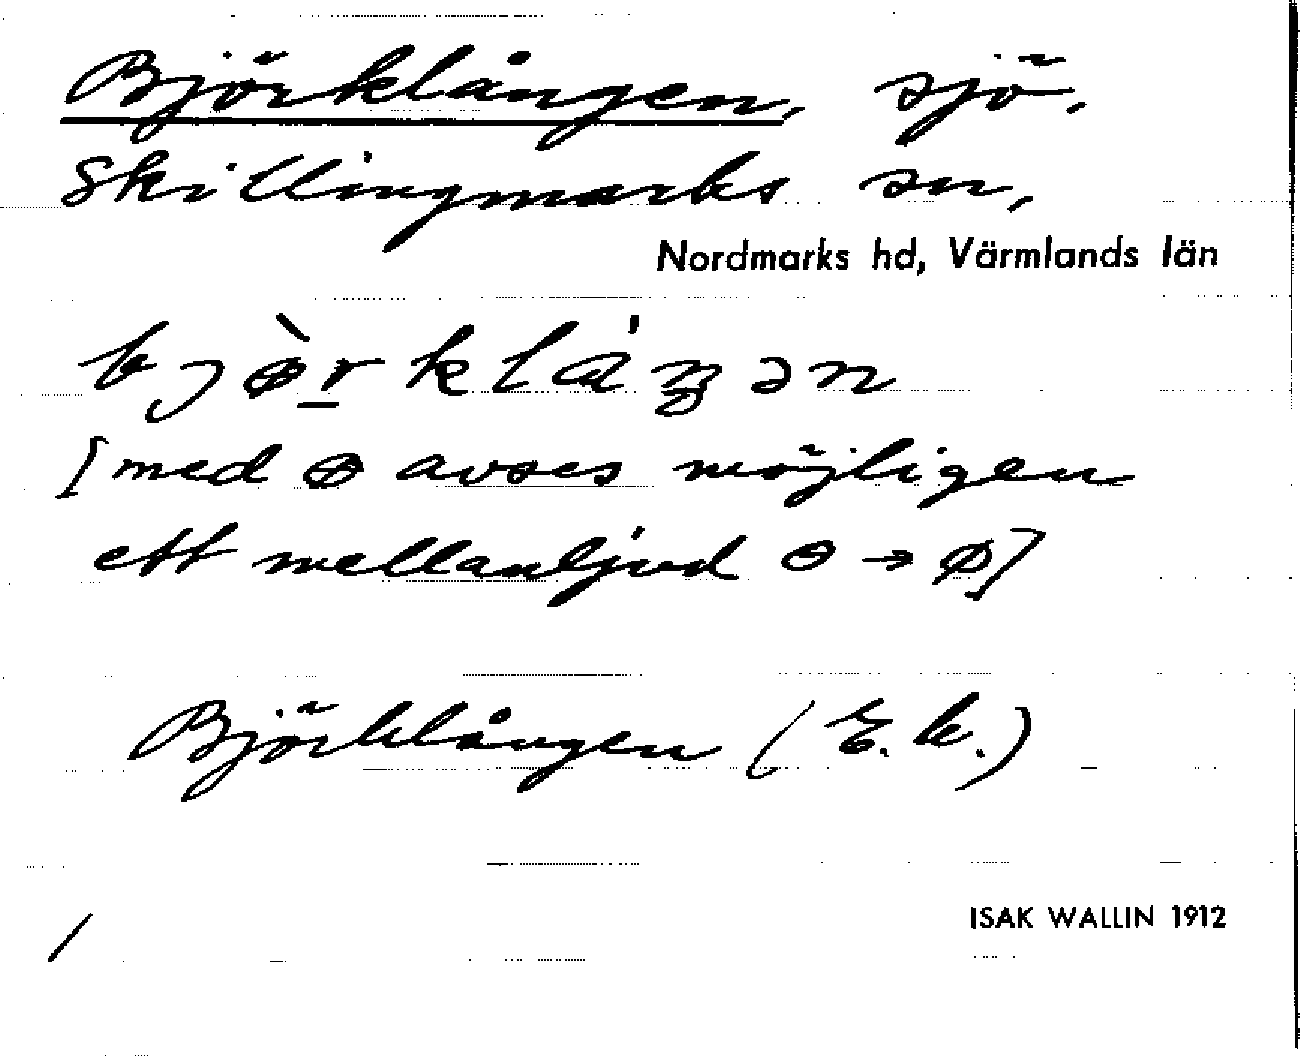 Björklången, sjö.
Skillingmarks sn,
Nordmarks hd, Värmlands län
bjɵ̀r̲kláŋən
[med ɵ avses möjligen
ett mellanljud ɵ → ø]
Björklången (E.k.)
/
ISAK WALLIN 1912